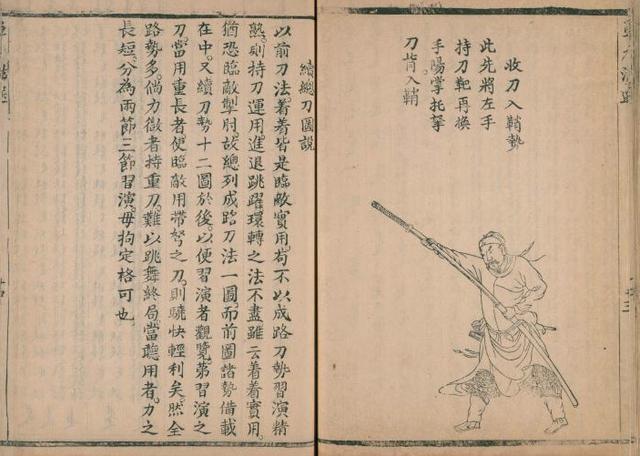 收刀入鞘勢
此先將左手
持刀靶再換
手陽掌托拏
刀背入鞘
續總刀圖說
以前刀法着着皆是臨敵實用苟不以成路刀勢習演精
熟則持刀運用進退跳躍環轉之法不盡雖云着着實用
猶恐臨敵掣肘故總列成路刀法一圖而前圖諸勢備載
在中又續刀勢十二圖於後以便習演者觀覽第習演之
刀當用重長者使臨敵用帶弩之刀則驍快輕利矣然全
路勢多倘力微者持重刀難以跳舞終局當聽用者力之
長短分為兩節三節習演毋拘定格可也